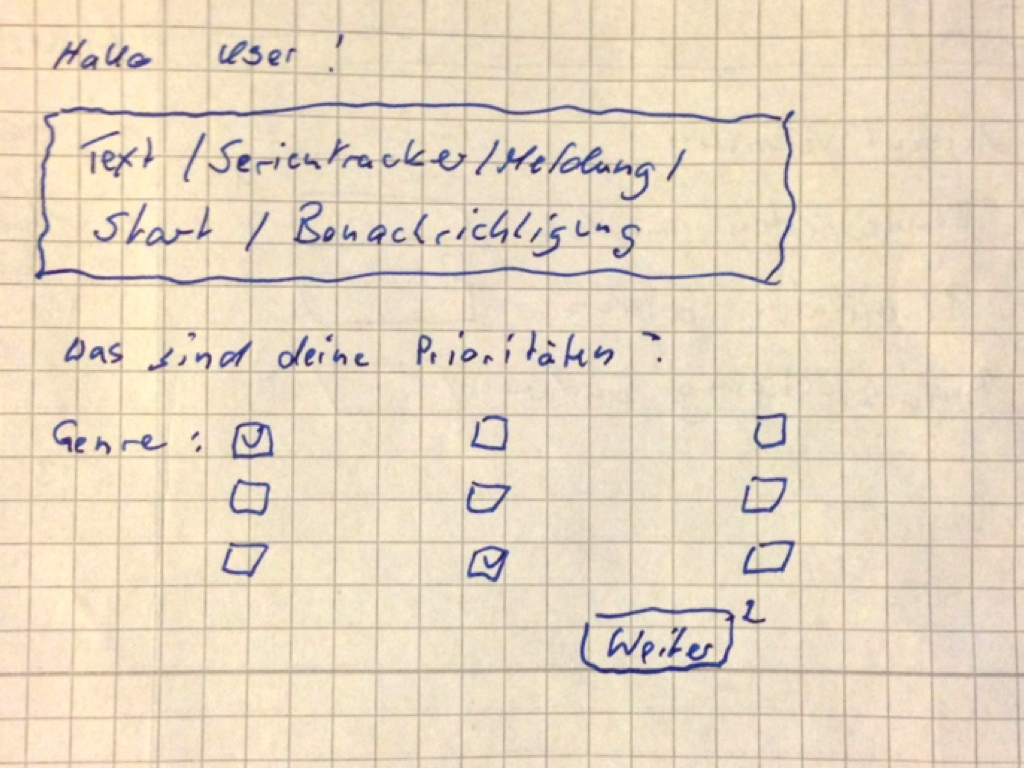 Hallo User!
Text / Serientracker / Meldung /
Start / Benachrichtigung
Das sind deine Prioritäten?
Genre:
Weiter 2